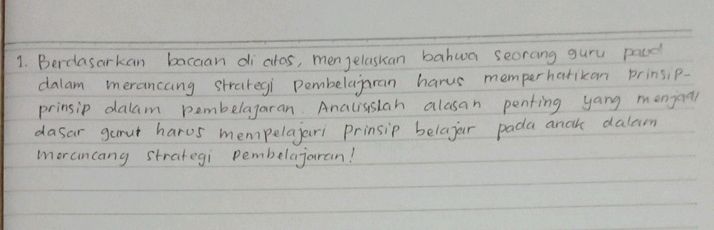 1. Berdasarkan bacaan di atas, menjelaskan bahwa seorang guru paud
dalam merancang strategi pembelajaran harus memperhatikan prinsip-
prinsip dalam pembelajaran. Analisislah alasan penting yang menjadi
dasar gurut harus mempelajari prinsip belajar pada anak dalam
merancang strategi pembelajaran!